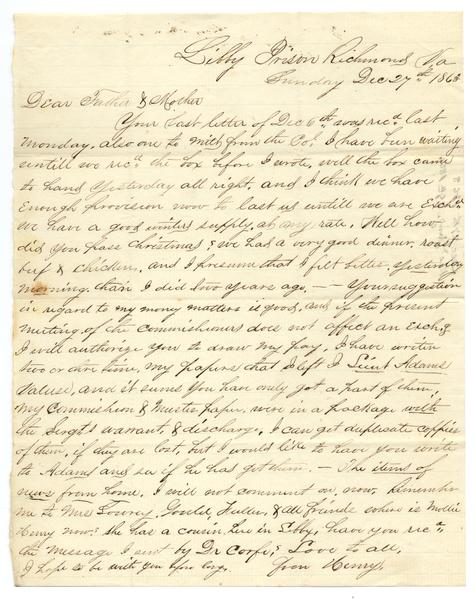 Libby Prison Richmond Va
Sunday Dec 27th 1863
Dear Father & Mother
Your last letter of Dec 6th was recd last
Monday, also one to Milt from the Col. I have been waiting
untill we recd the box before I wrote, well the box came
to hand yesterday all right, and I think we have
enough provision now to last us untill we are Exchd
we have a good winters supply at any rate. Well how
did you pass Christmas, we had a very good dinner, roast
beef & chicken, and I presume that I felt better, yesterday
morning, than I did two years ago. — — Your suggestion
in regard to my money matters is good, and if the present
meeting of the Commissioners does not affect an Exchg
I will authorize you to draw my pay, I have written
two or three time, my papers that I left I Lieut Adams
Valise, and it seems you han only got a part of them,
my Commission & Muster paper, were in a package with
the Sergts warrant, & discharge, I can get duplicate coppies
of them, if they are lost, but I would like to have you write
to Adams and see if he has got them. — The items of
news from home, I will not comment on, now. Remember
me to Mrs Lowrey, Gould, Fuller, & all friends where is Mollie
Henry now? she has a cousin here in Libby, have you recd
the message I sent by Dr Love to all,
I hope to be with you before long. from Henry.